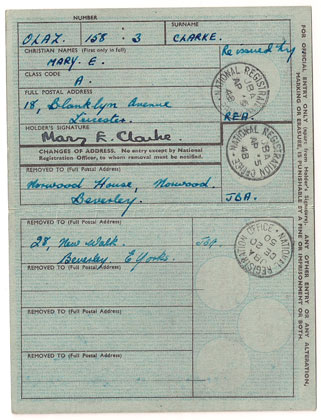 NUMBER SURNAME
OLAZ. 158 : 3 CLARKE.
CHRISTIAN NAMES (First only in full)
MARY. E. Re issued by
CLASS CODE
A.
FULL POSTAL ADDRESS
18, Blanklyn Avenue
Leicester. REA.
HOLDER'S SIGNATURE
Mary E. Clarke.
CHANGES OF ADDRESS. No entry except by National
Registration Officer, to whom removal must be notified.
REMOVED TO (Full Postal Address)
Norwood House, Norwood.
Beverley. JBA.
REMOVED TO (Full Postal Address)
28, New Walk.
Beverley. E. Yorks.
REMOVED TO (Full Postal Address)
REMOVED TO (Full Postal Address)
REMOVED TO (Full Postal Address)
NATIONAL REGISTRATION
NATIONAL REGISTRATION OFFICE
NATIONAL REGISTRATION OFFICE
FOR OFFICIAL ENTRY ONLY (apart from Holder's Signature). ANY OTHER ENTRY OR ANY ALTERATION,
MARKING OR ERASURE, IS PUNISHABLE BY A FINE OR IMPRISONMENT OR BOTH.